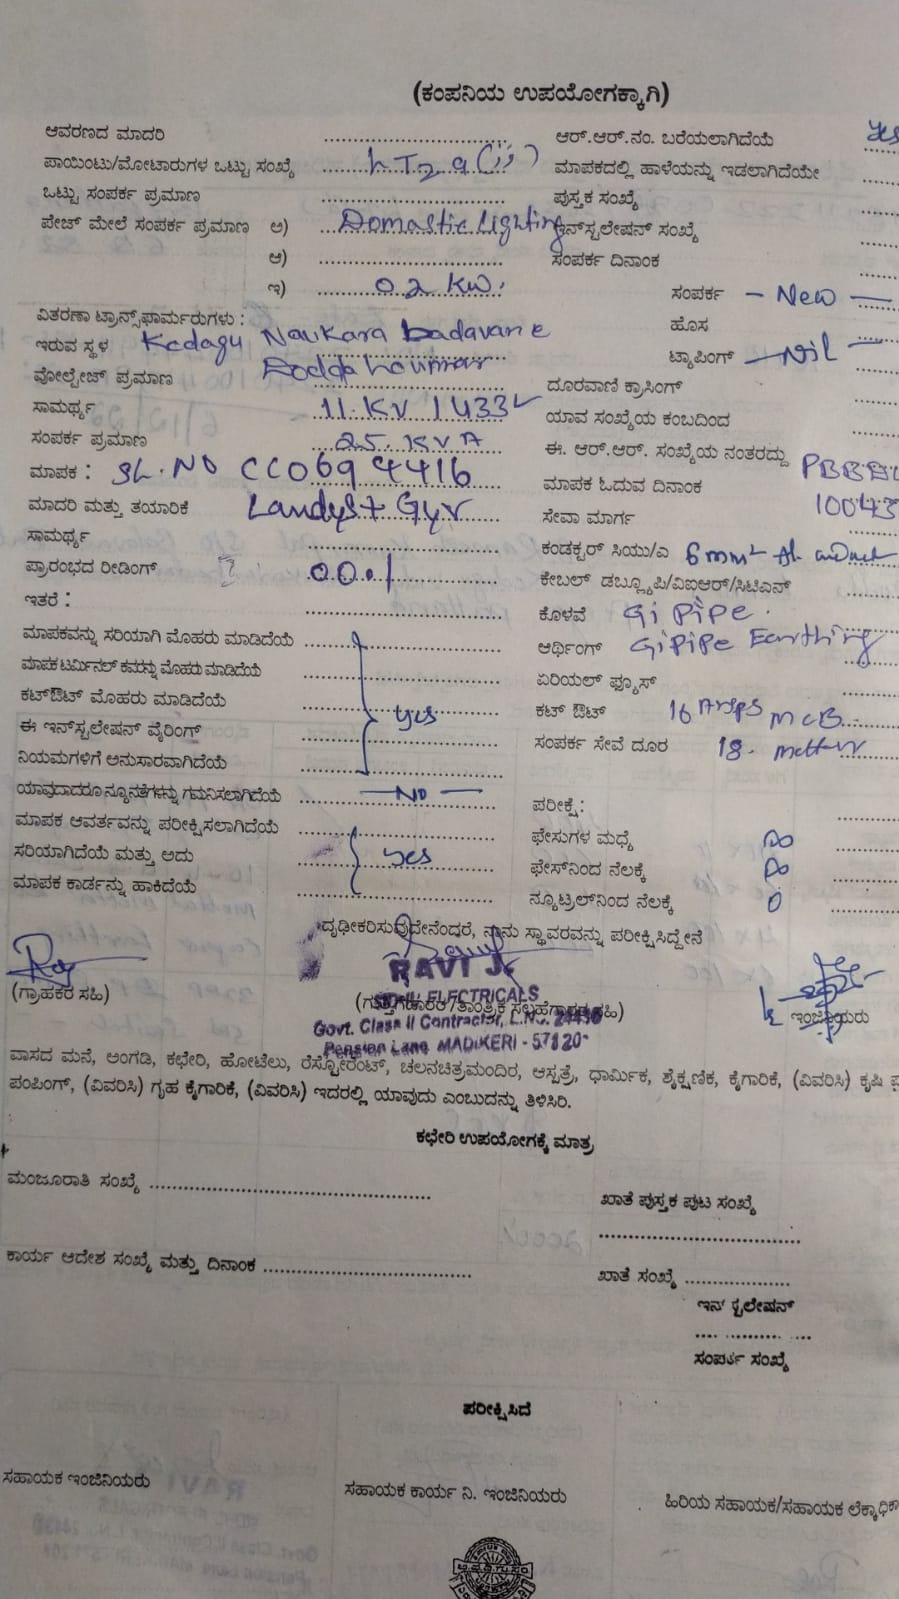 (ಕಂಪನಿಯ ಉಪಯೋಗಕ್ಕಾಗಿ)
ಆವರಣದ ಮಾದರಿ
ಪಾಯಿಂಟು/ಮೋಟಾರುಗಳ ಒಟ್ಟು ಸಂಖ್ಯೆ LT2 a(ii)
ಒಟ್ಟು ಸಂಪರ್ಕ ಪ್ರಮಾಣ
ಪೇಜ್ ಮೇಲೆ ಸಂಪರ್ಕ ಪ್ರಮಾಣ ಅ) Domastic Lighting
ಆ)
ಇ) 0.2 KW.
ವಿತರಣಾ ಟ್ರಾನ್ಸ್‌ಫಾರ್ಮರುಗಳು :
ಇರುವ ಸ್ಥಳ Kodagu Noukara badavane
ವೋಲ್ಟೇಜ್ ಪ್ರಮಾಣ
ಸಾಮರ್ಥ್ಯ 11.KV / 433
ಸಂಪರ್ಕ ಪ್ರಮಾಣ 25.KVA
ಮಾಪಕ : SL.NO CC0694416
ಮಾದರಿ ಮತ್ತು ತಯಾರಿಕೆ Landys+Gyr
ಸಾಮರ್ಥ್ಯ
ಪ್ರಾರಂಭದ ರೀಡಿಂಗ್ 00.1
ಇತರೆ :
ಮಾಪಕವನ್ನು ಸರಿಯಾಗಿ ಮೊಹರು ಮಾಡಿದೆಯೆ
ಮಾಪಕ ಟರ್ಮಿನಲ್ ಕವರನ್ನು ಮೊಹರು ಮಾಡಿದೆಯೆ
ಕಟ್‌ಔಟ್ ಮೊಹರು ಮಾಡಿದೆಯೆ
ಈ ಇನ್‌ಸ್ಟಲೇಷನ್ ವೈರಿಂಗ್ yes
ನಿಯಮಗಳಿಗೆ ಅನುಸಾರವಾಗಿದೆಯೆ
ಯಾವುದಾದರೂ ನ್ಯೂನತೆಗಳನ್ನು ಗಮನಿಸಲಾಗಿದೆಯೆ — NO —
ಮಾಪಕ ಆವರ್ತವನ್ನು ಪರೀಕ್ಷಿಸಲಾಗಿದೆಯೆ
ಸರಿಯಾಗಿದೆಯೆ ಮತ್ತು ಅದು yes
ಮಾಪಕ ಕಾರ್ಡನ್ನು ಹಾಕಿದೆಯೆ
ಆರ್.ಆರ್.ನಂ. ಬರೆಯಲಾಗಿದೆಯೆ yes
ಮಾಪಕದಲ್ಲಿ ಹಾಳೆಯನ್ನು ಇಡಲಾಗಿದೆಯೇ
ಪುಸ್ತಕ ಸಂಖ್ಯೆ
ಇನ್‌ಸ್ಟಲೇಷನ್ ಸಂಖ್ಯೆ
ಸಂಪರ್ಕ ದಿನಾಂಕ
ಸಂಪರ್ಕ — New —
ಹೊಸ
ಟ್ಯಾಪಿಂಗ್ — Nil —
ದೂರವಾಣಿ ಕ್ರಾಸಿಂಗ್
ಯಾವ ಸಂಖ್ಯೆಯ ಕಂಬದಿಂದ
ಈ. ಆರ್.ಆರ್. ಸಂಖ್ಯೆಯ ನಂತರದ್ದು
ಮಾಪಕ ಓದುವ ದಿನಾಂಕ 10043
ಸೇವಾ ಮಾರ್ಗ
ಕಂಡಕ್ಟರ್ ಸಿಯು/ಎ 6mm²
ಕೇಬಲ್ ಡಬ್ಲ್ಯೂಪಿ/ವಿಐಆರ್/ಸಿಟಿಎನ್
ಕೊಳವೆ Gi Pipe.
ಆರ್ಥಿಂಗ್ GiPiPe Earthing
ಏರಿಯಲ್ ಫ್ಯೂಸ್
ಕಟ್ ಔಟ್ 16 Amps MCB
ಸಂಪರ್ಕ ಸೇವೆ ದೂರ 18.
ಪರೀಕ್ಷೆ:
ಫೇಸುಗಳ ಮಧ್ಯೆ ∞
ಫೇಸ್‌ನಿಂದ ನೆಲಕ್ಕೆ ∞
ನ್ಯೂಟ್ರಲ್‌ನಿಂದ ನೆಲಕ್ಕೆ 0
ದೃಢೀಕರಿಸುವುದೇನೆಂದರೆ, ನಾನು ಸ್ಥಾವರವನ್ನು ಪರೀಕ್ಷಿಸಿದ್ದೇನೆ
RAVI J.
(ಗ್ರಾಹಕರ ಸಹಿ)
ELECTRICALS
ಇಂಜಿನಿಯರು
Govt. Class II Contractor, L.No. 24436
Pension Lane MADIKERI - 571201
ವಾಸದ ಮನೆ, ಅಂಗಡಿ, ಕಛೇರಿ, ಹೋಟೆಲು, ರೆಸ್ಟೋರೆಂಟ್, ಚಲನಚಿತ್ರಮಂದಿರ, ಆಸ್ಪತ್ರೆ, ಧಾರ್ಮಿಕ, ಶೈಕ್ಷಣಿಕ, ಕೈಗಾರಿಕೆ, (ವಿವರಿಸಿ) ಕೃಷಿ
ಪಂಪಿಂಗ್, (ವಿವರಿಸಿ) ಗೃಹ ಕೈಗಾರಿಕೆ, (ವಿವರಿಸಿ) ಇದರಲ್ಲಿ ಯಾವುದು ಎಂಬುದನ್ನು ತಿಳಿಸಿರಿ.
ಕಛೇರಿ ಉಪಯೋಗಕ್ಕೆ ಮಾತ್ರ
ಮಂಜೂರಾತಿ ಸಂಖ್ಯೆ
ಖಾತೆ ಪುಸ್ತಕ ಪುಟ ಸಂಖ್ಯೆ
ಕಾರ್ಯ ಆದೇಶ ಸಂಖ್ಯೆ ಮತ್ತು ದಿನಾಂಕ
ಖಾತೆ ಸಂಖ್ಯೆ
ಇನ್ ಸ್ಟಲೇಷನ್
ಸಂಪರ್ಕ ಸಂಖ್ಯೆ
ಪರೀಕ್ಷಿಸಿದೆ
ಸಹಾಯಕ ಇಂಜಿನಿಯರು
ಸಹಾಯಕ ಕಾರ್ಯ ನಿ. ಇಂಜಿನಿಯರು
ಹಿರಿಯ ಸಹಾಯಕ/ಸಹಾಯಕ